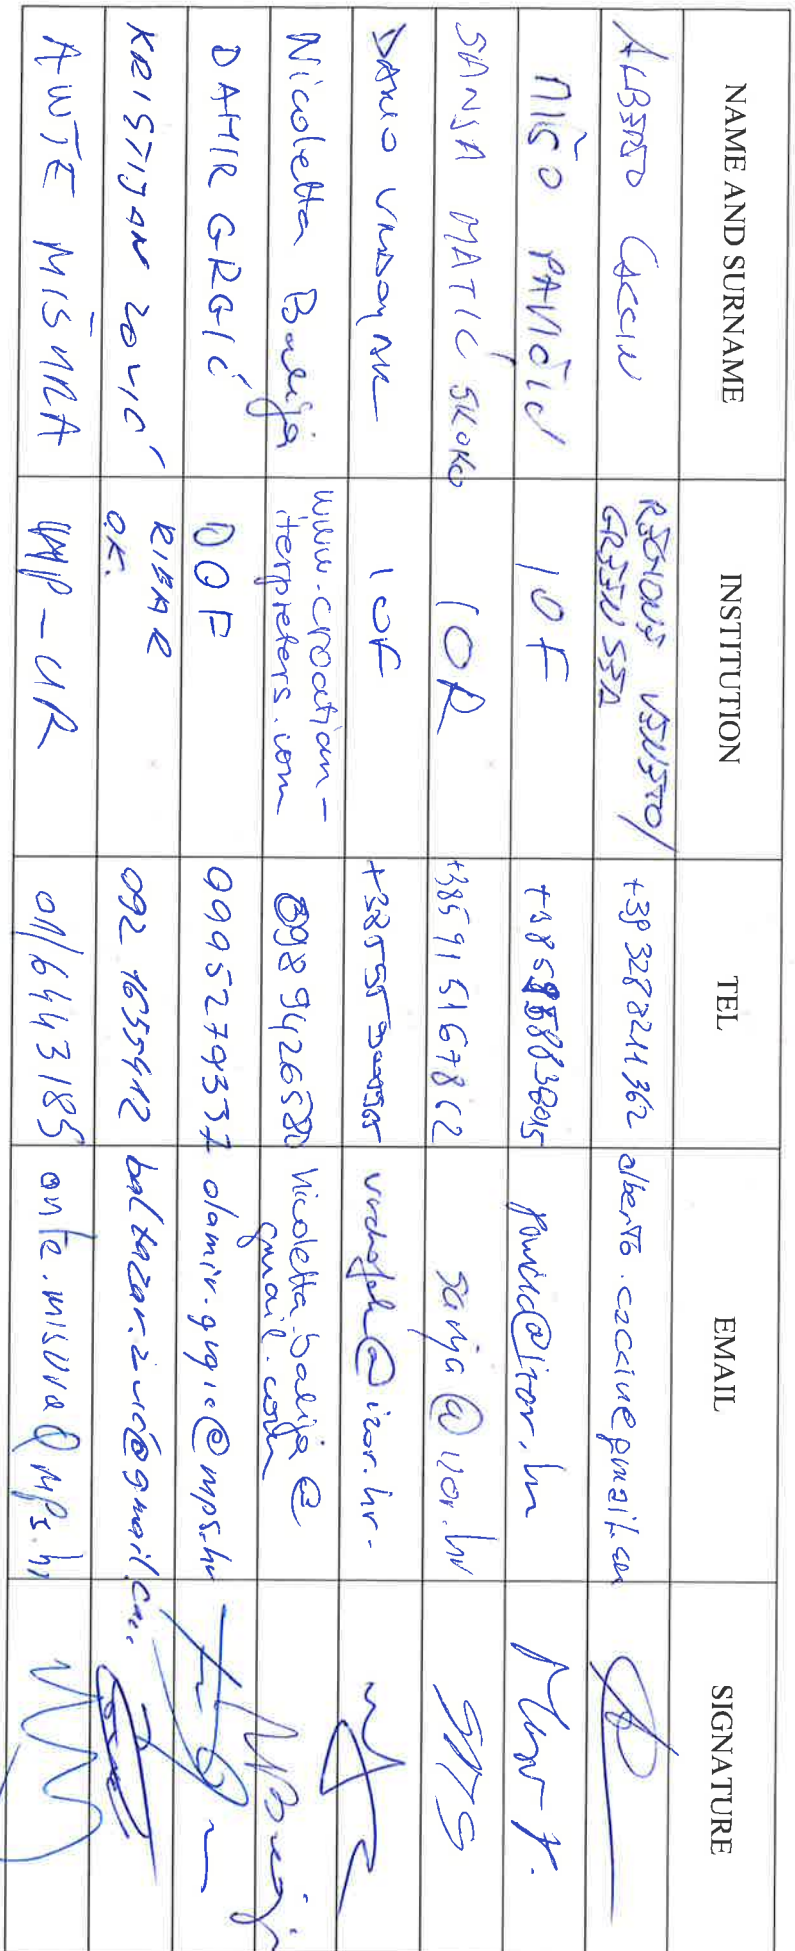 NAME AND SURNAME INSTITUTION TEL EMAIL SIGNATURE
ALBERTO CACCIN REGIONE VENETO/ GREEN SEA +39 328 0211362 alberto.caccin@gmail.com
MIŠO PAVIČIĆ IOF @izor.hr
SANJA MATIĆ SKOKO IOR +385915167862 sanja@izor.hr
IOF @izor.hr
Nicoletta Balija www.croatian-
iterpreters.com 0989426580 nicoletta.balija@
gmail.com
DAMIR GRGIĆ DOF damir.grgic@mps.hr
KRISTIJAN ZOVIĆ RIBAR
O.K. 092 1655412 @gmail.com
ANTE MIŠURA UMP-UR 01/6443185 ante.misura@mps.hr